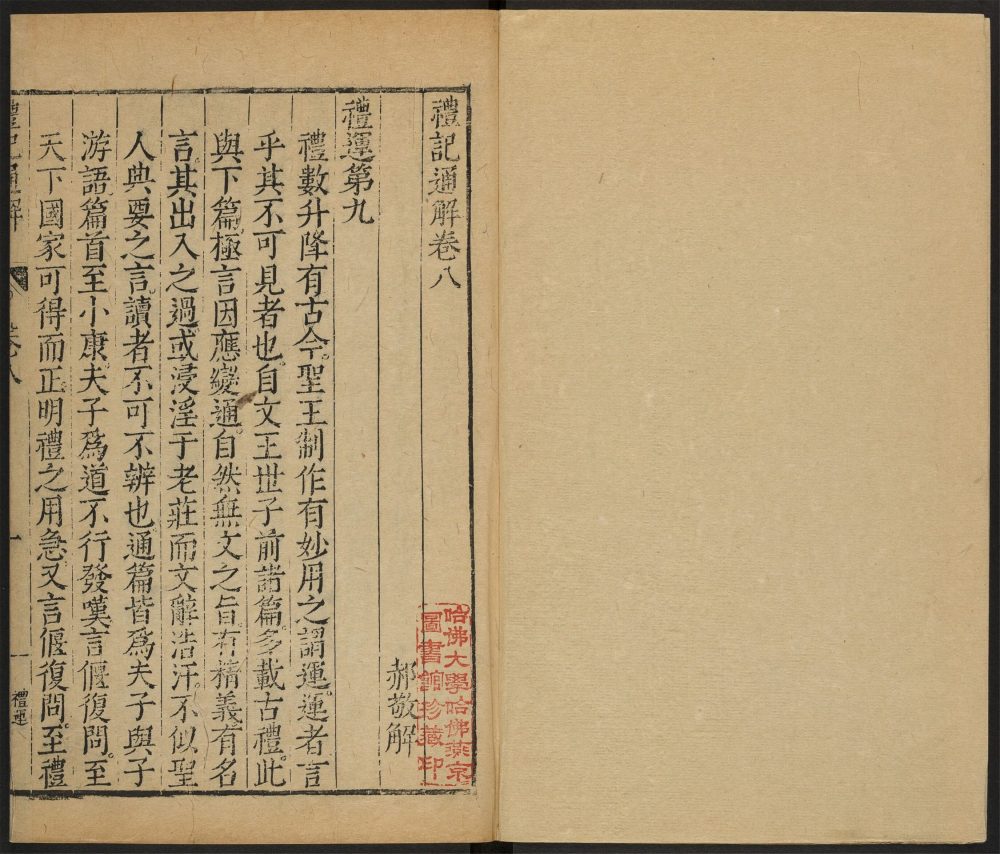 禮記通解卷八
郝敬解
禮運第九
禮數升降有古今。聖王制作有妙用之謂運。運者言
乎其不可見者也。自文王世子前諸篇。多載古禮。此
與下篇。極言因應變通。自然無文之旨。有精義。有名
言。其出入之過。或浸淫于老莊。而文辭浩汗。不似聖
人典要之言。讀者不可不辨也。通篇皆爲夫子與子
游語。篇首至小康。夫子爲道不行發嘆。言偃復問。至
天下國家可得而正。明禮之用急。又言偃復問。至禮
禮記通解
卷八
一
禮運
哈佛大學哈佛燕京
圖書館珍藏印